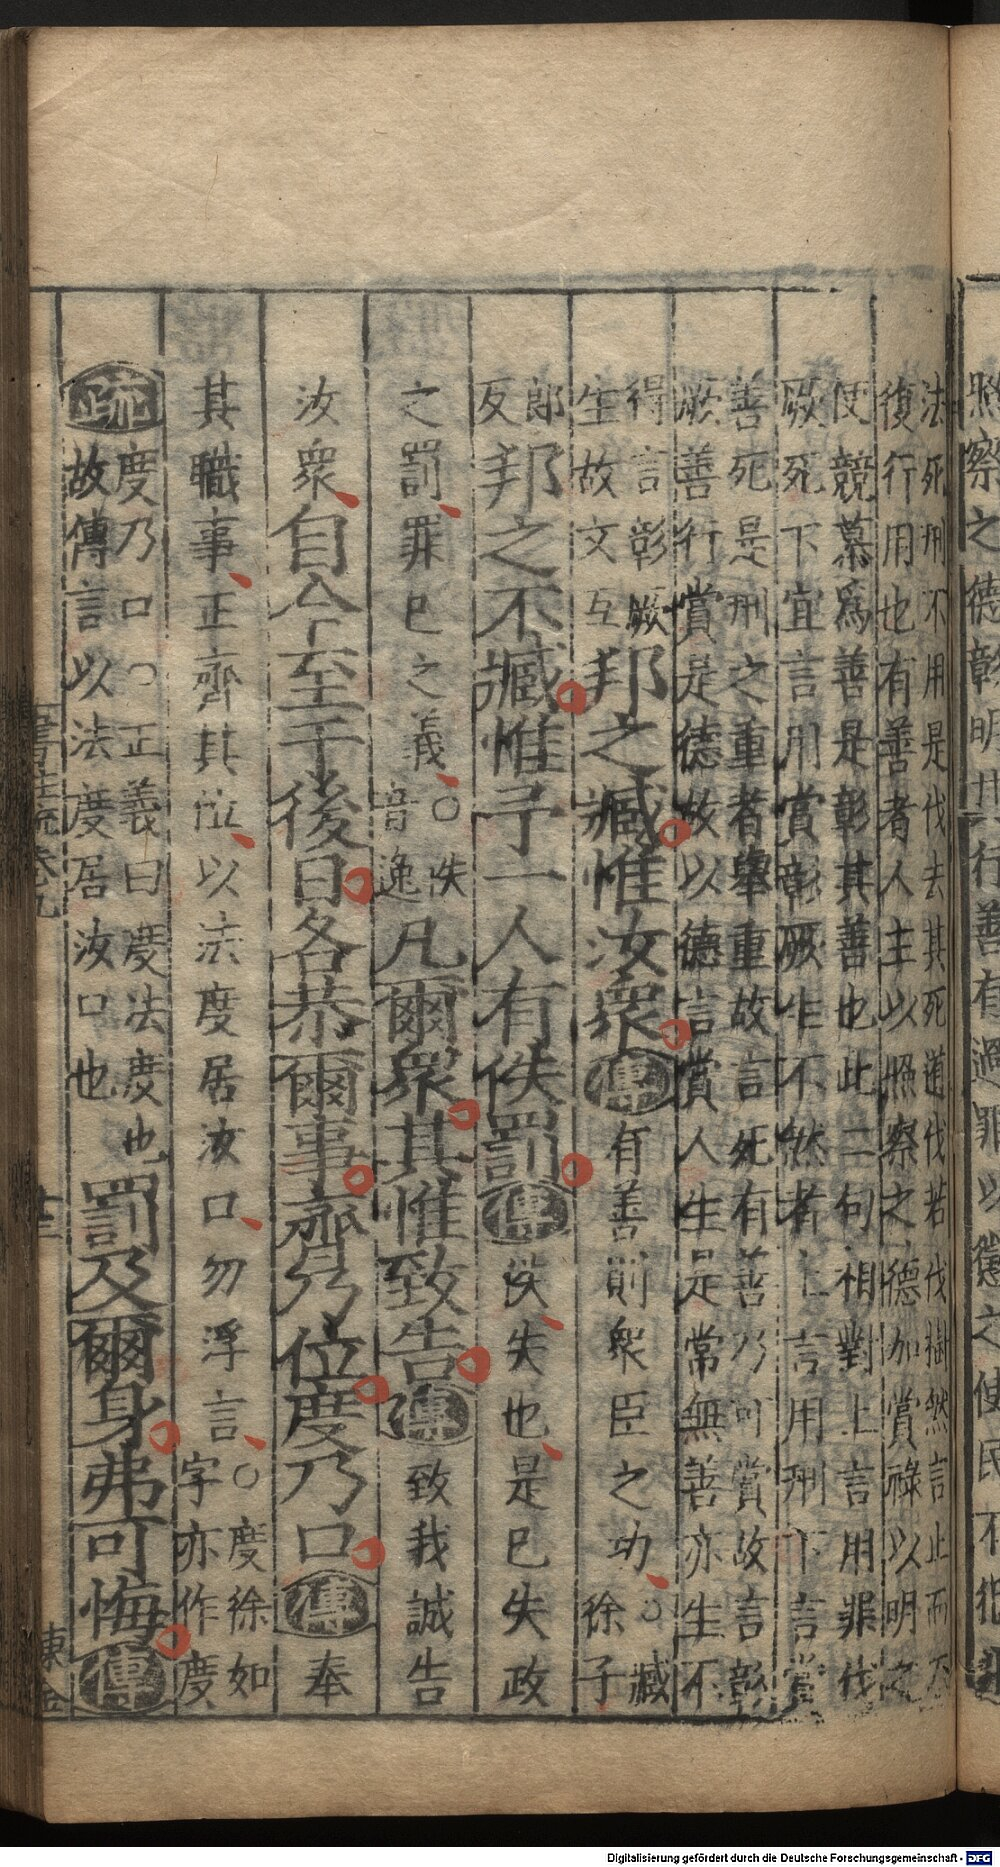 照察之德彰明
行善有過罪以懲之使民不犯
法死刑不用是伐去其死道伐若伐樹然言止而不
復行用也有善者人主以照察之德加賞祿以明之
使競慕爲善是彰其善也此二句相對上言用罪伐
厥死下宜言用賞彰厥生不然者上言用刑下言賞
善死是刑之重者舉重故言死有善乃可賞故言彰
厥善行賞是德故以德言賞人生是常無善亦生不
得言彰厥
生故文互
邦之臧惟汝衆傳有善則衆臣之功○臧
徐子
郎
反
邦之不臧惟予一人有佚罰傳佚失也是已失政
之罰罪已之義○佚
音逸
凡爾衆其惟致告傳致我誠告
汝衆自今至于後日各恭爾事齊乃位度乃口傳奉
其職事正齊其位以法度居汝口勿浮言○度徐如
字亦作度
疏度乃口○正義曰度法度也
故傳言以法度居汝口也
罰及爾身弗可悔傳
書注疏卷九
廿三
東金
Digitalisierung gefördert durch die Deutsche Forschungsgemeinschaft - DFG